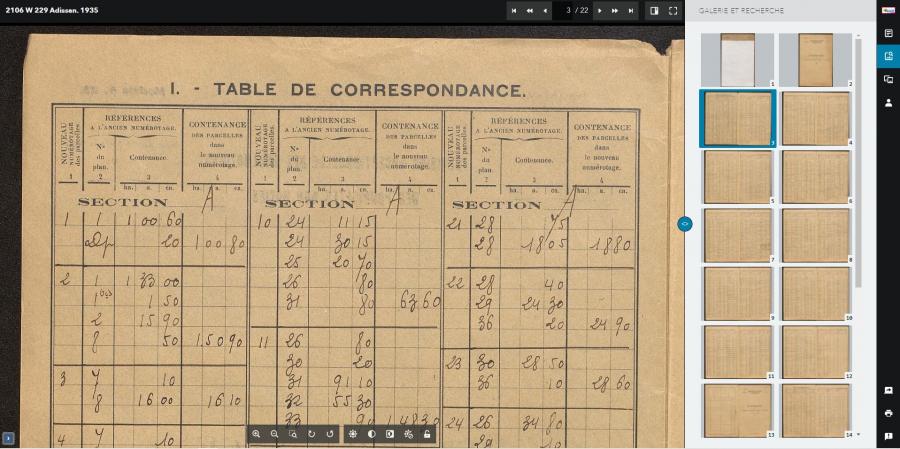 2106 W 229 Adissen. 1935
3 / 22
GALERIE ET RECHERCHE
I. - TABLE DE CORRESPONDANCE.
NOUVEAU NUMÉROTAGE des parcelles.
RÉFÉRENCES A L'ANCIEN NUMÉROTAGE.
CONTENANCE DES PARCELLES dans le nouveau numérotage.
NOUVEAU NUMÉROTAGE des parcelles.
RÉFÉRENCES A L'ANCIEN NUMÉROTAGE.
CONTENANCE DES PARCELLES dans le nouveau numérotage.
NOUVEAU NUMÉROTAGE des parcelles.
RÉFÉRENCES A L'ANCIEN NUMÉROTAGE.
CONTENANCE DES PARCELLES dans le nouveau numérotage.
N° du plan. Contenance. N° du plan. Contenance. N° du plan. Contenance.
1 2 3 4 1 2 3 4 1 2 3 4
ha. a. ca. ha. a. ca. ha. a. ca. ha. a. ca. ha. a. ca. ha. a. ca.
SECTION A SECTION A SECTION A
1 1 1 00 60 10 24 11 15 21 28 75
Dp 20 1 00 80 24 30 15 28 18 05 18 80
25 20 70
2 1 1 33 00 26 80 22 28 40
1bis 1 50 31 80 63 60 29 24 30
2 15 90 36 20 24 90
8 50 1 50 90 11 26 80
30 20 23 30 28 50
3 7 10 31 91 10 36 10 28 60
8 16 00 16 10 32 55 30
33 90 1 48 30 24 26 34 80
4 7 10 29 10
1 2
3 4
5 6
7 8
9 10
11 12
13 14